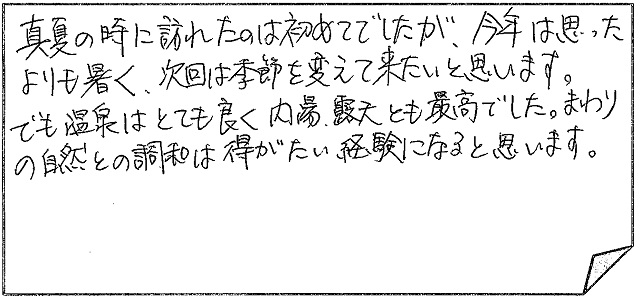 真夏の時に訪れたのは初めてでしたが、今年は思った
よりも暑く、次回は季節を変えて来たいと思います。
でも温泉はとても良く内湯、露天とも最高でした。まわり
の自然との調和は得がたい経験になると思います。